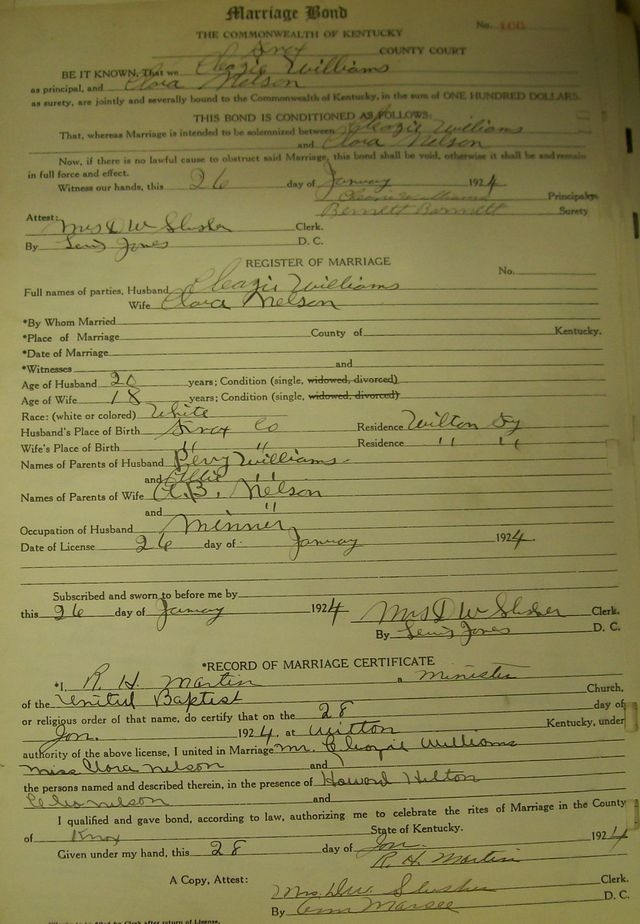 Marriage Bond
No.
THE COMMONWEALTH OF KENTUCKY
Knox COUNTY COURT
BE IT KNOWN, That we Cleazie Williams
as principal, and Clora Nelson
as surety, are jointly and severally bound to the Commonwealth of Kentucky, in the sum of ONE HUNDRED DOLLARS.
THIS BOND IS CONDITIONED AS FOLLOWS:
That, whereas Marriage is intended to be solemnized between Cleazie Williams
and Clora Nelson
Now, if there is no lawful cause to obstruct said Marriage, this bond shall be void, otherwise it shall be and remain
in full force and effect.
Witness our hands, this 26 day of January 1924
Williams Principal
Bennett Surety
Attest: Mrs D W Slusher Clerk.
By Lewis Jones D. C.
REGISTER OF MARRIAGE
No.
Full names of parties, Husband Cleazie Williams
Wife Clora Nelson
*By Whom Married
*Place of Marriage County of Kentucky.
*Date of Marriage
*Witnesses and
Age of Husband 20 years; Condition (single, widowed, divorced)
Age of Wife 18 years; Condition (single, widowed, divorced)
Race: (white or colored) White
Husband's Place of Birth Knox Co Residence Wilton Ky
Wife's Place of Birth " " Residence " "
Names of Parents of Husband Perry Williams
and Ollie "
Names of Parents of Wife A.B. Nelson
and "
Occupation of Husband Minner
Date of License 26 day of January 1924.
Subscribed and sworn to before me by
this 26 day of January 1924 Mrs D W Slusher Clerk.
By Lewis Jones D. C.
*RECORD OF MARRIAGE CERTIFICATE
*I, R. H. Martin a Minister
of the United Baptist Church,
or religious order of that name, do certify that on the 28 day of
Jan. 1924, at Wilton Kentucky, under
authority of the above license, I united in Marriage Mr. Cleozie Williams
Miss Clora Nelson and
the persons named and described therein, in the presence of Howard Hilton
Cleo Nelson and
I qualified and gave bond, according to law, authorizing me to celebrate the rites of Marriage in the County
of Knox State of Kentucky.
Given under my hand, this 28 day of Jan. 1924
R. H. Martin
A Copy, Attest:
Mrs. D.W. Slusher Clerk.
By Ann Marsee D. C.